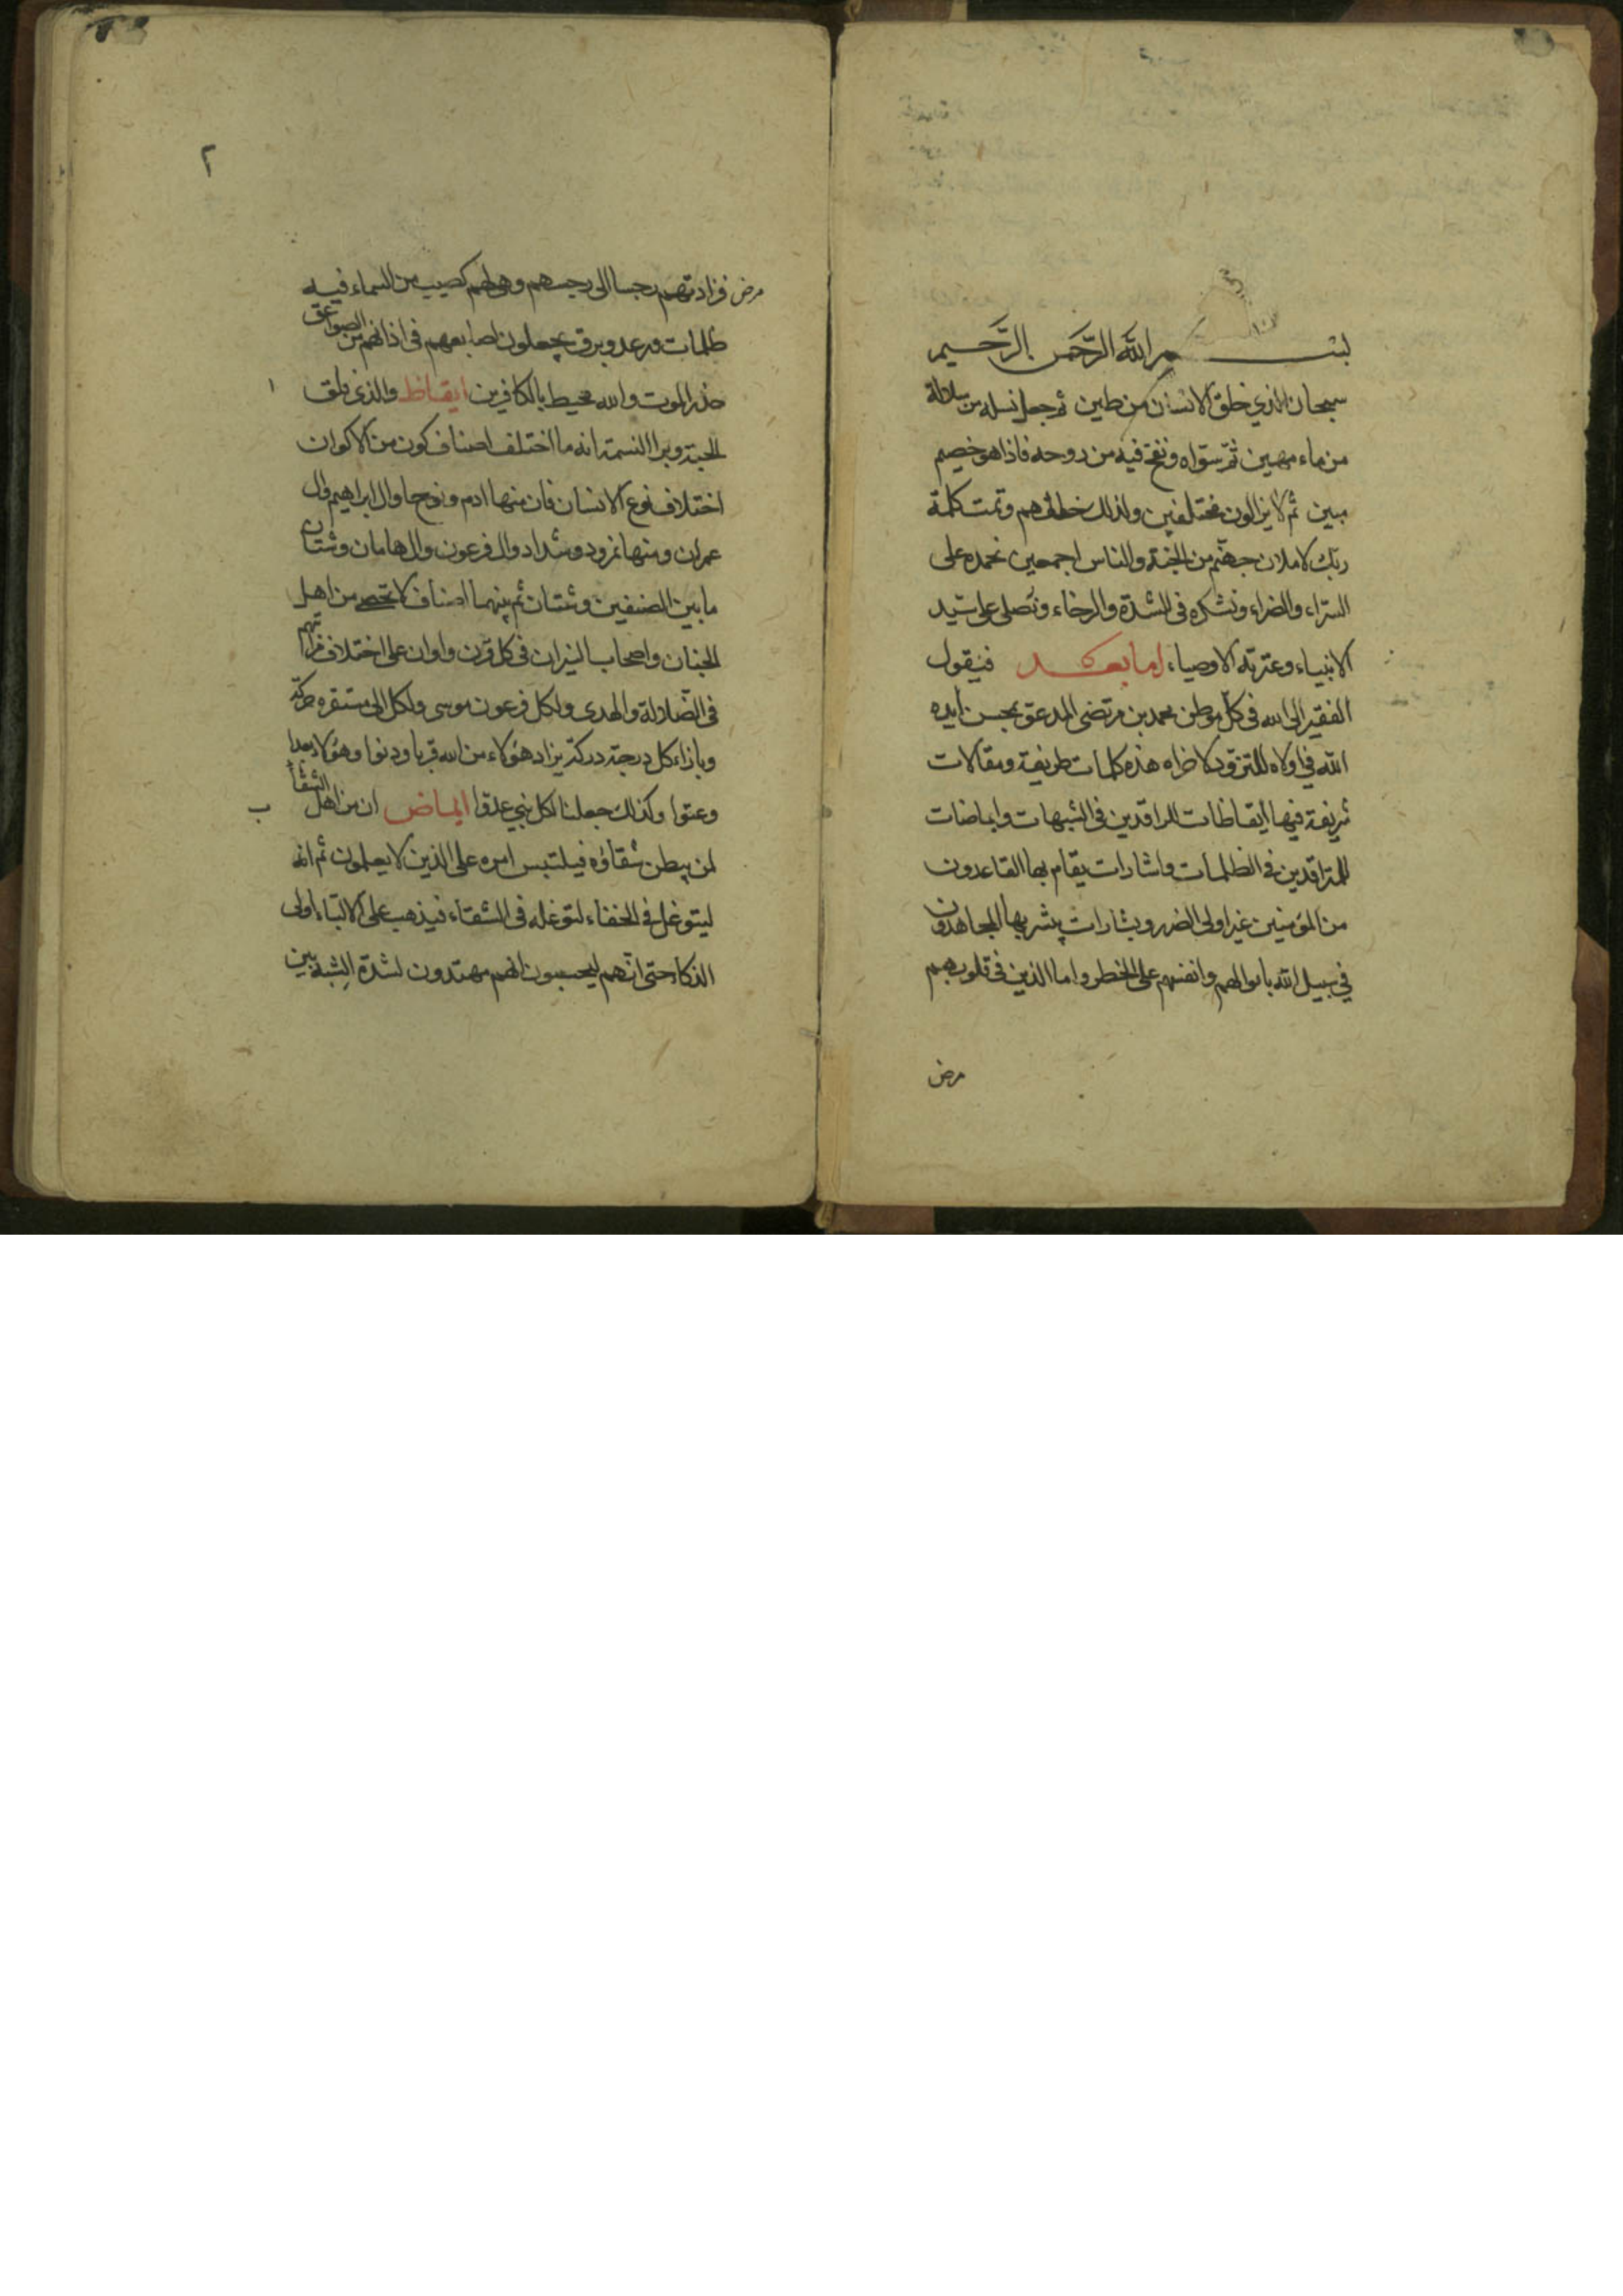 بسم الله الرَّحمن الرَّحيم
سبحان الذي خلق الانسان من طين ثم جعل نسله من سلالة
من ماء مهين ثمّ سوّاه ونفخ فيه من روحه فاذا هو خصيم
مبين ثم لا يزالون مختلفين ولذلك خلقهم وتمت كلمة
ربّك لاملان جهنّم من الجنة والناس اجمعين نحمده على
السرّاء والضراء ونشكره فى الشدة والرخاء ونصلى على سيّد
الانبياء وعترته الاوصياء اما بعد فيقول
الفقير الى الله فى كلّ موطن محمد بن مرتضى المدعوّ بمحسن ايده
الله فى اولاه للتزوّد لاخراه هذه كلمات طريفة ومقالات
شريفة فيها ايقاظات للراقدين فى الشبهات وايماضات
للمتراقدين فى الظلمات واشارات يقام بها القاعدون
من المؤمنين غير اولى الضرر وبشارات يبشر بها المجاهدون
فى سبيل الله باموالهم وانفسهم على الخطر واما الذين فى قلوبهم
مرض
٢
مرض فزادتهم رجسا الى رجسهم وهى لهم كصيب من السماء فيه
ظلمات ورعد وبرق يجعلون اصابعهم فى اذانهم من الصواعق
حذر الموت والله محيط بالكافرين ايقاظ والذى فلق ١
الحبة وبرا النسمة انه ما اختلف اصناف كون من الاكوان
اختلاف نوع الانسان فان منها ادم ونوحا وال ابراهيم وال
عمران ومنها نمرود وشداد وال فرعون وال هامان وشتان
ما بين الصنفين وشتان ثم بينهما اصناف لا تحصى من اهل
الجنان واصحاب النيران فى كل قرن واوان على اختلاف مراتبهم
فى الضلالة والهدى ولكل فرعون موسى ولكل الى مستقره حركة
وبازاء كل درجة دركة يزاد هؤلاء من الله قربا ودنوا وهؤلاء بعدا
وعتوا وكذلك جعلنا لكل نبي عدوا ايماض ان من اهل الشقاء ب
لمن يبطن شقاؤه فيلتبس امره على الذين لا يعلمون ثم انه
ليتوغل فى الخفاء لتوغله فى الشقاء فيذهب على الالباء اولى
الذكاء حتى انّهم ليحسبون انهم مهتدون لشدة الشبه بين